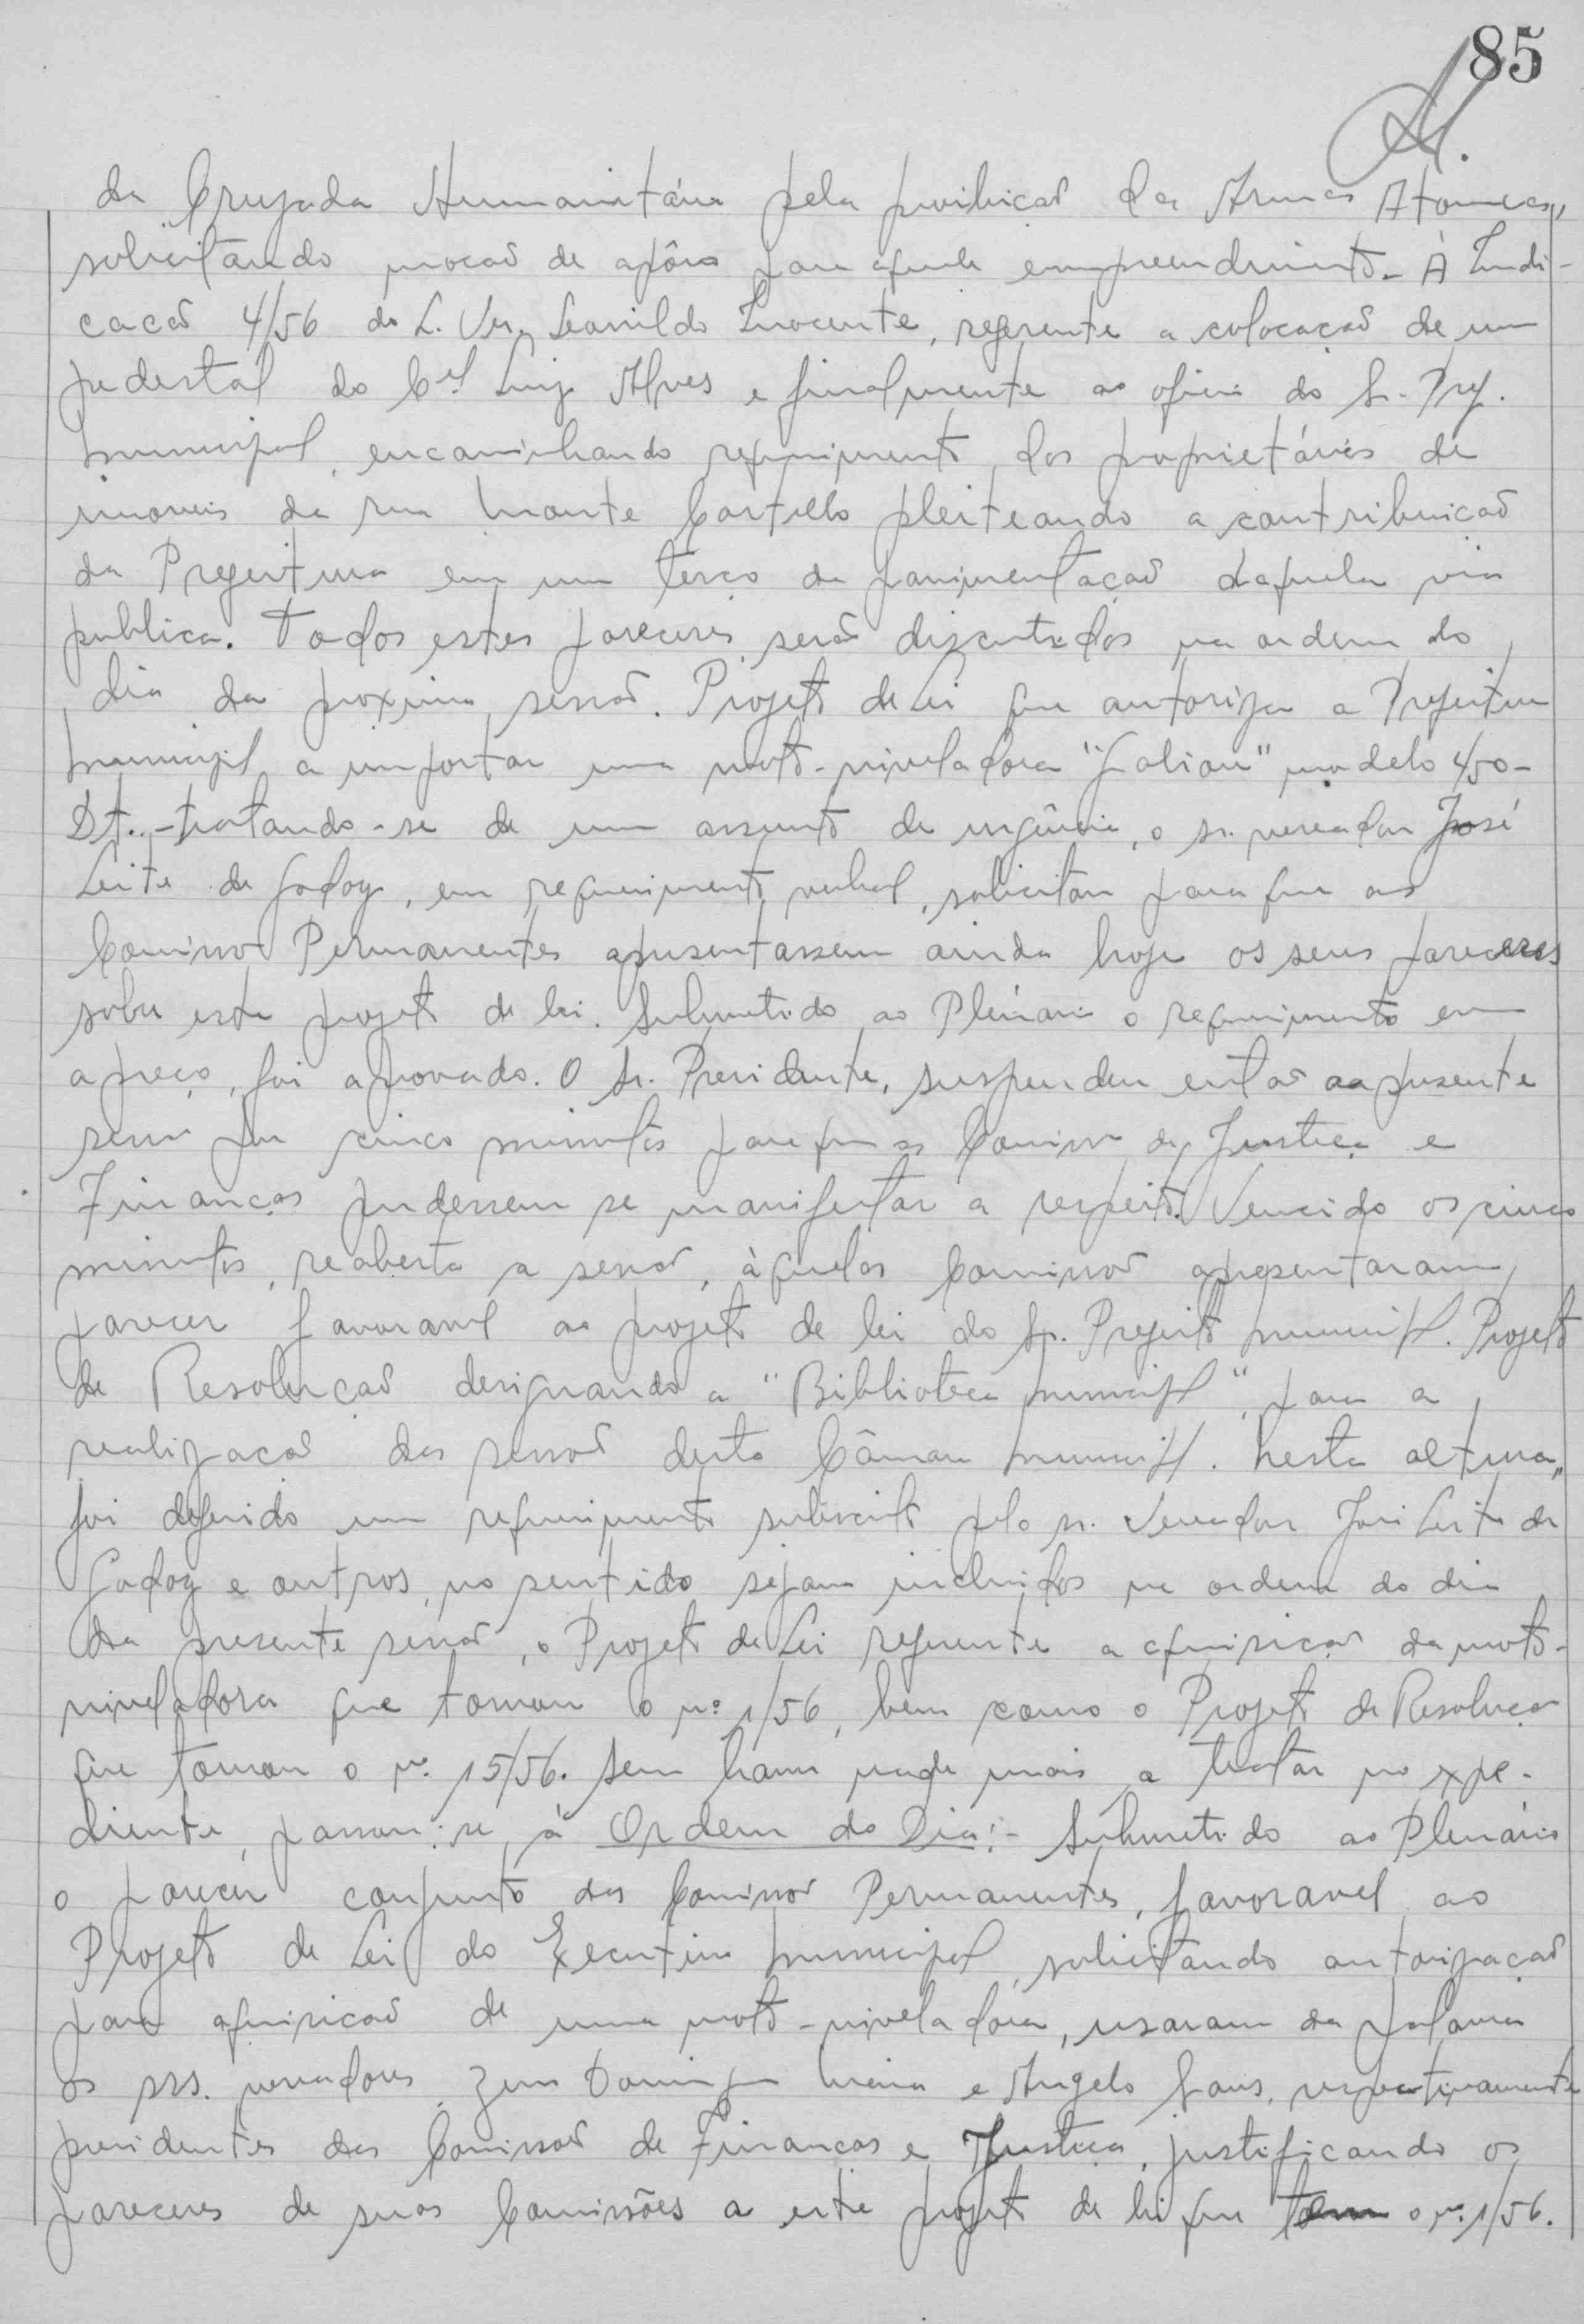 85
da Cruzada Humanitária pela proibicaõ das Armas Atomicas,
solicitando mocaõ de apôio para aquele empreendimento. - À Indi-
cacaõ 4/56 do S. Ver. Leonildo Inocente, referente a colocacaõ de um
pedestal do Cel Luiz Alves e finalmente ao oficio do Sr. Pref.
Municipal, encaminhando requerimento dos proprietários de
imoveis da rua Monte Castello pleiteando a contribuicaõ
da Prefeitura em um terço da pavimentaçaõ daquela via
publica. Todos estes pareceres seraõ discutidos na ordem do
dia da proxima sessaõ. Projeto de Lei que autoriza a Prefeitura
Municipal a importar uma moto-niveladora "Galion" modelo 450-
Dt. - tratando-se de um assunto de urgência, o sr. vereador José
Leite de Godoy, em requerimento verbal, solicitou para que as
Comissoẽ Permanentes apresentassem ainda hoje os seus pareceres
sobre este projeto de lei. Submetido ao Plenário o requerimento em
apreço, foi aprovado. O Sr. Presidente, suspendeu entaõ a presente
sessaõ por cinco minutos para que as Comissoẽ de Justiça e
Finanças pudessem se manifestar a respeito. Vencido os cinco
minutos, reaberta a sessaõ, àquelas Comissoẽ apresentaram
parecer favoravel ao projeto de lei do Sr. Prefeito Municipal. Projeto
de Resolucaõ designando a "Biblioteca Municipal", para a
realizacaõ das sessoẽ desta Câmara Municipal. Nesta altura,
foi deferido um requerimento subscrito pelo sr. Vereador José Leite de
Godoy e outros, no sentido sejam incluidos na ordem do dia
da presente sessaõ, o Projeto de Lei referente a aquisicaõ da moto-
niveladora que tomou o nº 1/56, bem como o Projeto de Resolucaõ
que tomou o nº. 15/56. Sem haver nada mais a tratar no expe-
diente, passou-se à Ordem do Dia: - Submetido ao Plenário
o parecer conjunto das Comissoẽ Permanentes, favoravel ao
Projeto de Lei do Executivo Municipal, solicitando autorizaçaõ
para aquisicaõ de uma moto-niveladora, usaram da palavra
os srs. vereadores Domingos e Angelo, respectivamente
presidentes das Comissoẽ de Financas e Justica, justificando os
pareceres de suas Comissões a este projeto de lei que tem o nº. 1/56.